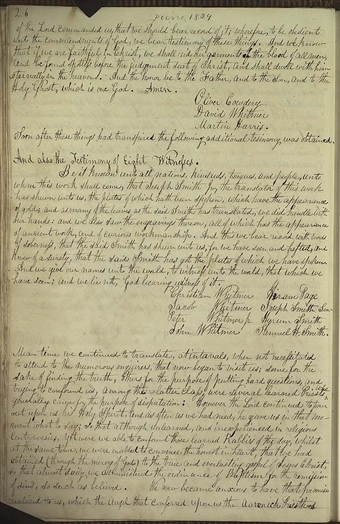 26 June 1829
of the Lord commanded us that we should bear record of it; wherefore, to be obedient
unto the commandments of God, we bear testimony of these things. And we know
that if we are faithful in Christ, we shall rid our garments of the blood of all men,
and be found spotless before the judgement seat of Christ, and shall dwell with him
eternally in the heavens. And the honor be to the Father, and to the Son, and to the
Holy Ghost, which is one God. Amen.
Oliver Cowdery
David Whitmer
Martin Harris.
Soon after these things had transpired the following additional testimony was obtained.
And also the Testimony of Eight Witnesses.
Be it known unto all nations, kindreds, tongues, and people, unto
whom this work shall come, that Joseph Smith Jr, the translator of this work
has shewn unto us, the plates of which hath been spoken, which have the appearance
of gold; and as many of the leaves as the said Smith has translated, we did handle with
our hands: and we also saw the engravings thereon, all of which has the appearance
of ancient work, and of curious workmanship. And this we bear record with words
of soberness, that the said Smith has shewn unto us, for we have seen and hefted, and
know of a surety, that the said Smith has got the plates of which we have spoken.
And we give our names unto the world, to witness unto the world, that which we
have seen: and we lie not, God bearing witness of it.
Christian Whitmer Hiram Page
Jacob Whitmer Joseph Smith Sen
Peter Whitmer jr Hyrum Smith
John Whitmer Samuel H. Smith.
Mean time we continued to translate, at intervals, when not necessitated
to attend to the numerous enquirers, that now began to visit us; some for the
sake of finding the truth, others for the purpose of putting hard questions, and
trying to confound us, among this latter class were several learned Priests
generally came for the purpose of disputation: However the Lord continued to pour
out upon us his Holy Spirit, and as often as we had need, he gave us in that mo-
ment what to say; so that although unlearned, and inexperienced in religious
controversies, yet were we able to confound those learned Rabbi's of the day, whilst
at the same time, we were enabled to convince the honest in heart, that we had
obtained (through the mercy of God) to the true and everlasting gospel of Jesus Christ,
so that almost daily we administered the ordinance of Baptism for the remission
of sins, to such as believed. We now became anxious to have that promise
realized to us, which the angel that conferred upon us the Aaronick Priesthood